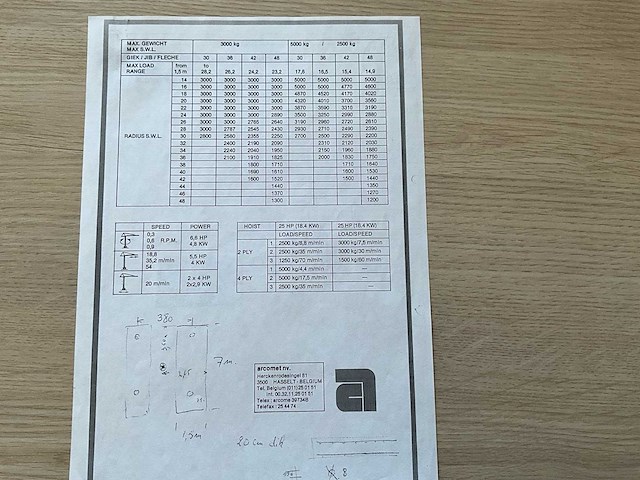 MAX. GEWICHT 3000 kg 5000 kg / 2500 kg
MAX S.W.L.
GIEK / JIB / FLECHE 30 36 42 48 30 36 42 48
MAX LOAD. from to
RANGE 1,5 m 28,2 26,2 24,2 23,2 17,6 16,5 15,4 14,9
14 3000 3000 3000 3000 5000 5000 5000 5000
16 3000 3000 3000 3000 5000 5000 4770 4600
18 3000 3000 3000 3000 4870 4520 4170 4020
20 3000 3000 3000 3000 4320 4010 3700 3560
22 3000 3000 3000 3000 3870 3590 3310 3190
24 3000 3000 3000 2890 3500 3250 2990 2880
26 3000 3000 2765 2640 3190 2960 2720 2610
28 3000 2787 2545 2430 2930 2710 2490 2390
RADIUS S.W.L. 30 2800 2580 2355 2250 2700 2500 2290 2200
32 2400 2190 2090 2310 2120 2030
34 2240 2040 1950 2150 1960 1880
36 2100 1910 1825 2000 1830 1750
38 1800 1710 1710 1640
40 1690 1610 1600 1530
42 1600 1520 1500 1440
44 1440 1350
46 1370 1270
48 1300 1200
SPEED POWER
0,3
0,6 R.P.M.
0,9
6,6 HP
4,8 KW
18,8
35,2 m/min
54
5,5 HP
4 KW
20 m/min
2 x 4 HP
2x2,9 KW
HOIST 25 HP (18,4 KW) 25 HP (18,4 KW)
LOAD/SPEED LOAD/SPEED
2 PLY
1 2500 kg/8,8 m/min 3000 kg/7,5 m/min
2 2500 kg/35 m/min 3000 kg/30 m/min
3 1250 kg/70 m/min 1500 kg/60 m/min
4 PLY
1 5000 kg/4,4 m/min —
2 5000 kg/17,5 m/min —
3 2500 kg/35 m/min —
380
7m
1,5m
20 cm dik
8
arcomet nv.
Herckenrodesingel 81
3500 HASSELT - BELGIUM
Tel. Belgium (011) 25 01 51
Int. 00.32.11.25 01 51
Telex : arcome 397348
Telefax : 25 44 74
a